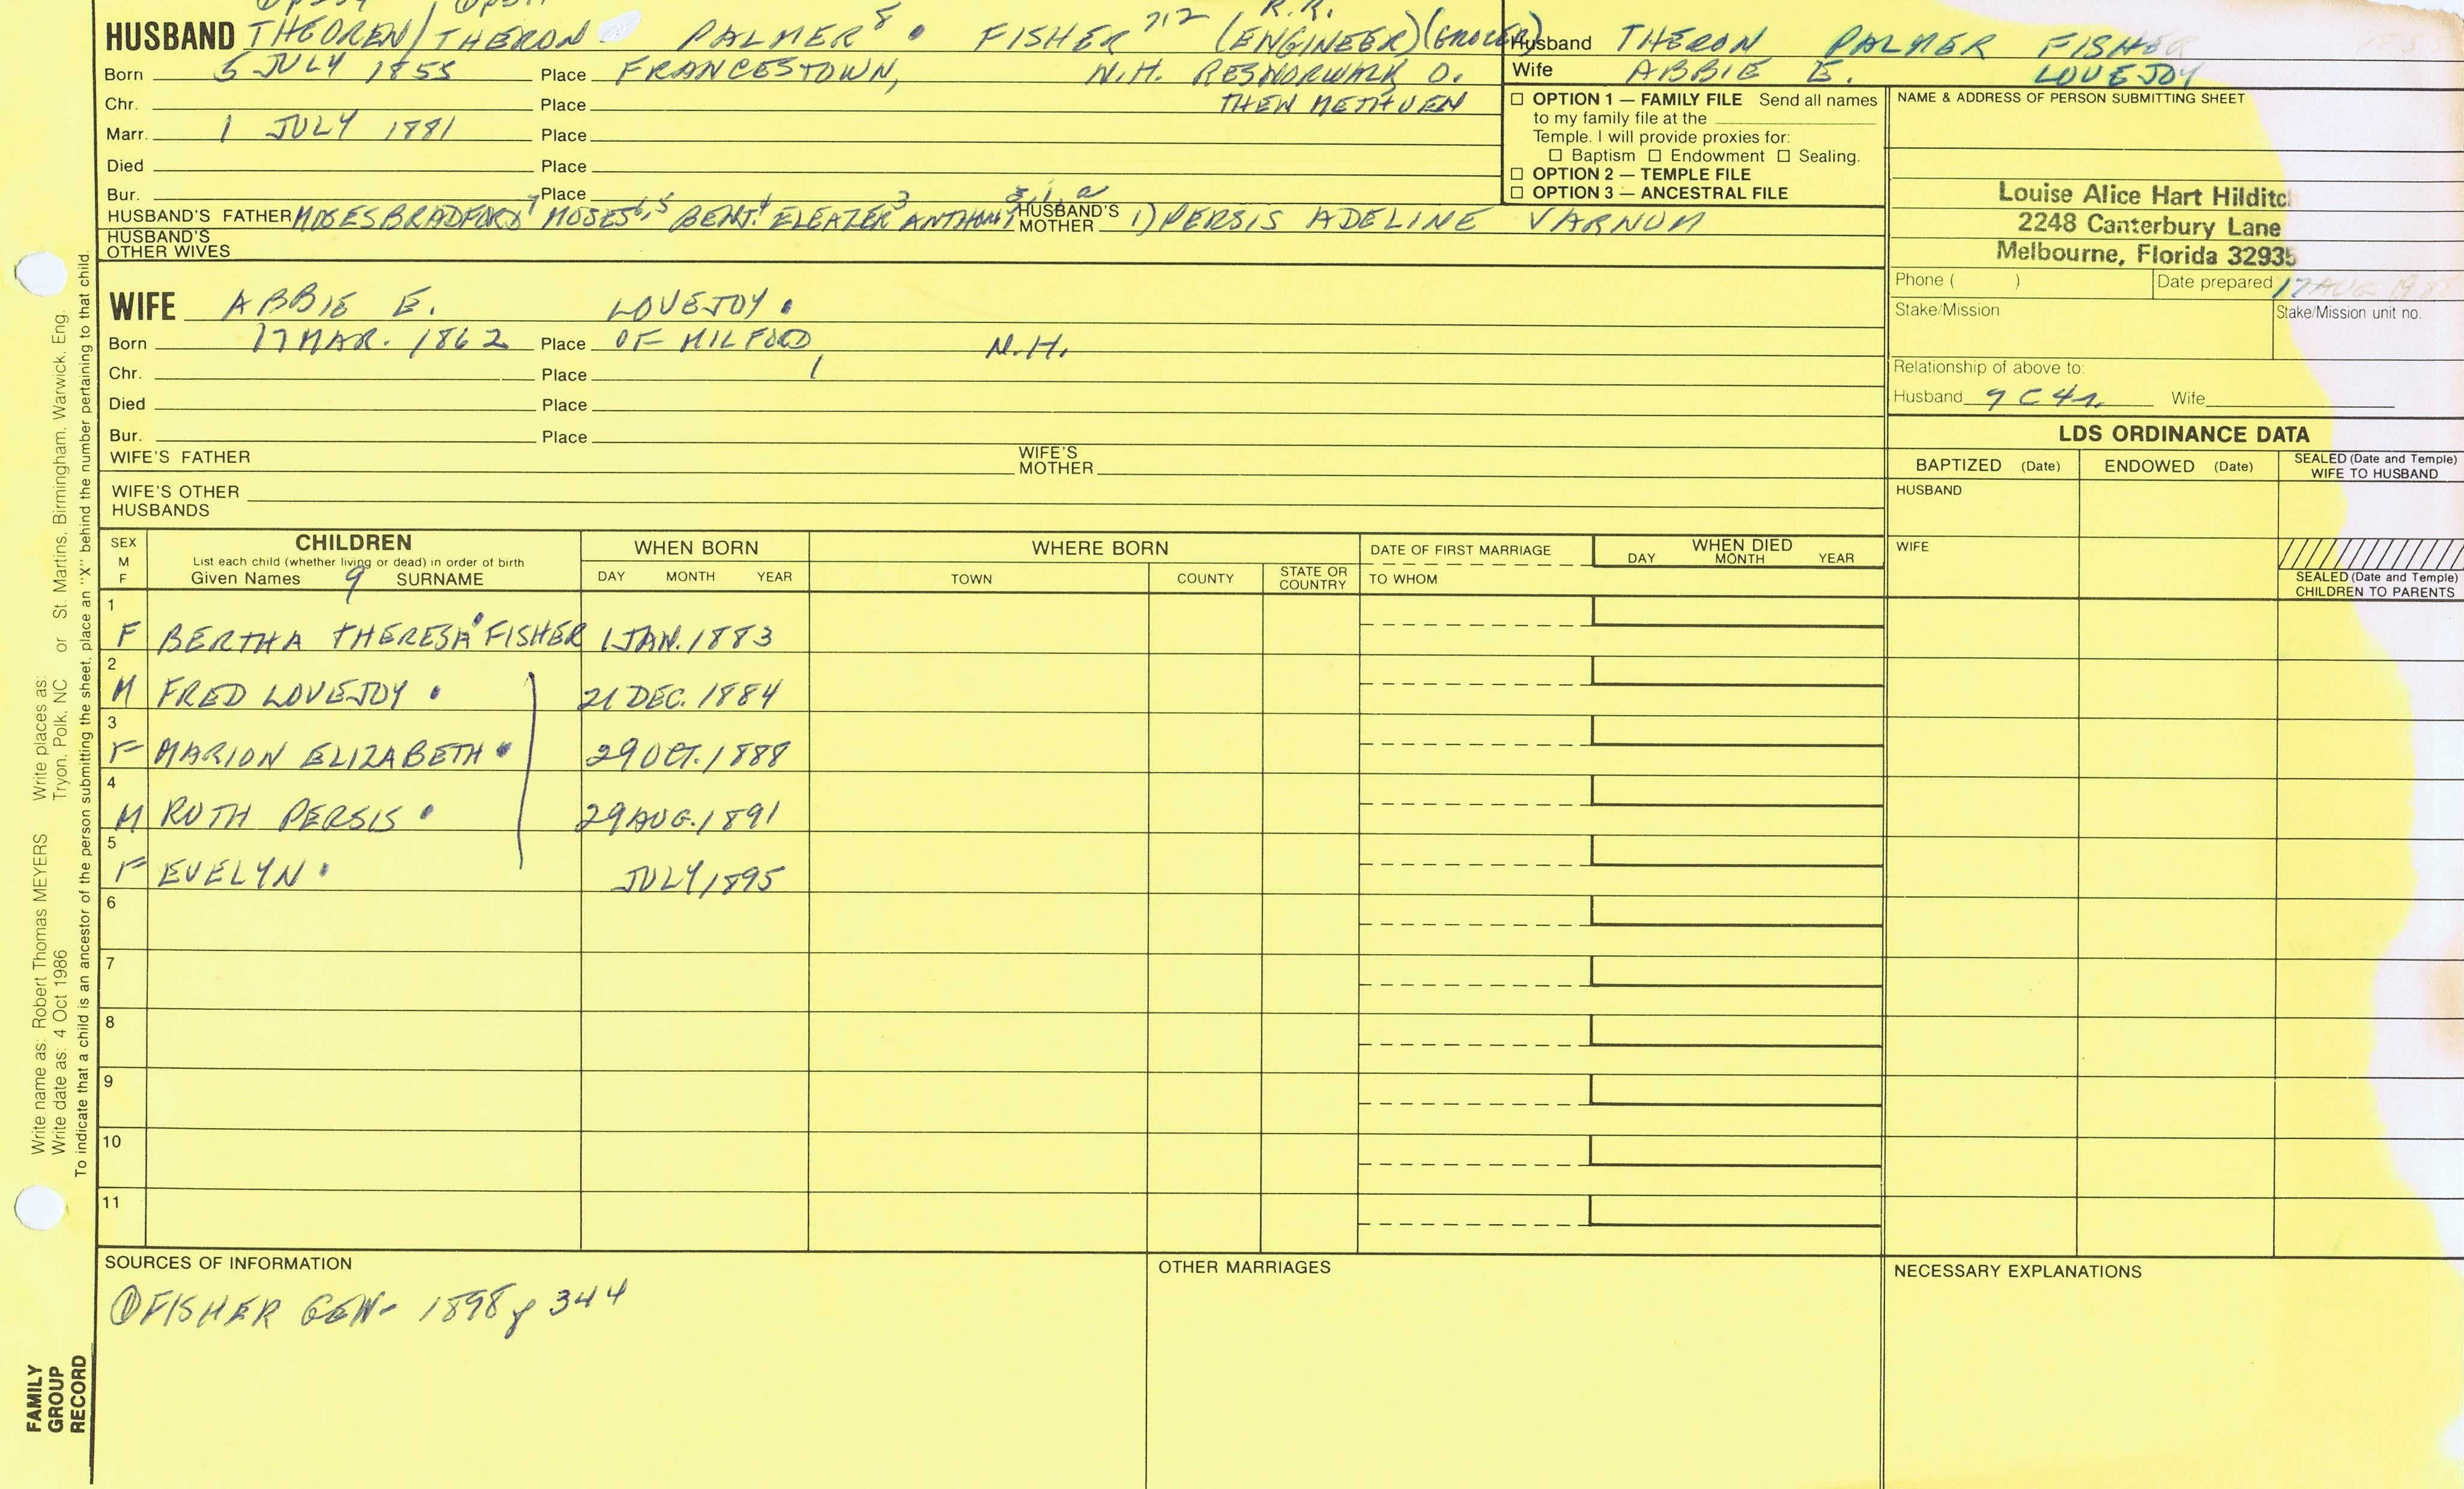 HUSBAND THEOREN/THERON PALMER 8 • FISHER 712 (ENGINEER) (GROCER)
R.R.
Born 5 JULY 1855 Place FRANCESTOWN, N.H. RES NORWALK O.
Chr. Place THEN METHUEN
Marr. 1 JULY 1881 Place
Died Place
Bur. Place
HUSBAND'S FATHER MOSES BRADFORD 7 MOSES 6,5 BENJ. 4 ELEAZER 3 ANTHONY HUSBAND'S MOTHER 1) PERSIS ADELINE VARNUM
HUSBAND'S OTHER WIVES
Husband THERON PALMER FISHER
Wife ABBIE E. LOVEJOY
☐ OPTION 1 — FAMILY FILE Send all names
to my family file at the
Temple. I will provide proxies for:
☐ Baptism ☐ Endowment ☐ Sealing.
☐ OPTION 2 — TEMPLE FILE
☐ OPTION 3 — ANCESTRAL FILE
NAME & ADDRESS OF PERSON SUBMITTING SHEET
Louise Alice Hart Hilditc
2248 Canterbury Lane
Melbourne, Florida 32935
Phone ( ) Date prepared 17 AUG
Stake/Mission Stake/Mission unit no.
Relationship of above to:
Husband 9C4r Wife
WIFE ABBIE E. LOVEJOY •
Born 17 MAR. 1862 Place OF MILFORD, N.H.
Chr. Place
Died Place
Bur. Place
WIFE'S FATHER WIFE'S MOTHER
WIFE'S OTHER HUSBANDS
LDS ORDINANCE DATA
BAPTIZED (Date) ENDOWED (Date) SEALED (Date and Temple) WIFE TO HUSBAND
HUSBAND
WIFE
SEALED (Date and Temple)
CHILDREN TO PARENTS
SEX M F CHILDREN WHEN BORN WHERE BORN DATE OF FIRST MARRIAGE WHEN DIED
List each child (whether living or dead) in order of birth DAY MONTH YEAR
Given Names 9 SURNAME DAY MONTH YEAR TOWN COUNTY STATE OR COUNTRY TO WHOM
1 F BERTHA THERESA • FISHER 1 JAN. 1883
2 M FRED LOVEJOY • 21 DEC. 1884
3 F MARION ELIZABETH • 29 OCT. 1888
4 M RUTH PERSIS • 29 AUG. 1891
5 F EVELYN • JULY 1895
6
7
8
9
10
11
SOURCES OF INFORMATION
① FISHER GEN- 1898 p 344
OTHER MARRIAGES
NECESSARY EXPLANATIONS
Write name as: Robert Thomas MEYERS Write places as: Tryon, Polk, NC or St. Martins, Birmingham, Warwick, Eng.
Write date as: 4 Oct 1986
To indicate that a child is an ancestor of the person submitting the sheet, place an "X" behind the number pertaining to that child.
FAMILY
GROUP
RECORD